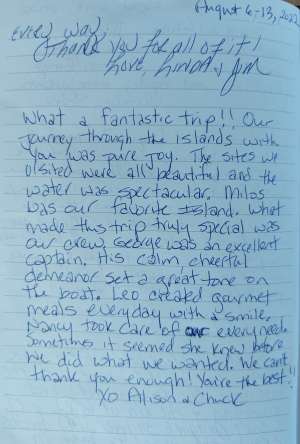 August 6-13, 2022
every way.
Thank you for all of it!
Love, Linda & Jim
What a fantastic trip!! Our
journey through the islands with
you was pure joy. The sites we
visited were all beautiful and the
water was spectacular. Milos
was our favorite Island. What
made this trip truly special was
our crew. George was an excellent
captain. His calm cheerful
demeanor set a great tone on
the boat. Leo created gourmet
meals everyday with a smile.
Nancy took care of our every need.
Sometimes it seemed she knew before
we did what we wanted. We can't
thank you enough! You're the best!!
XO Allison & Chuck